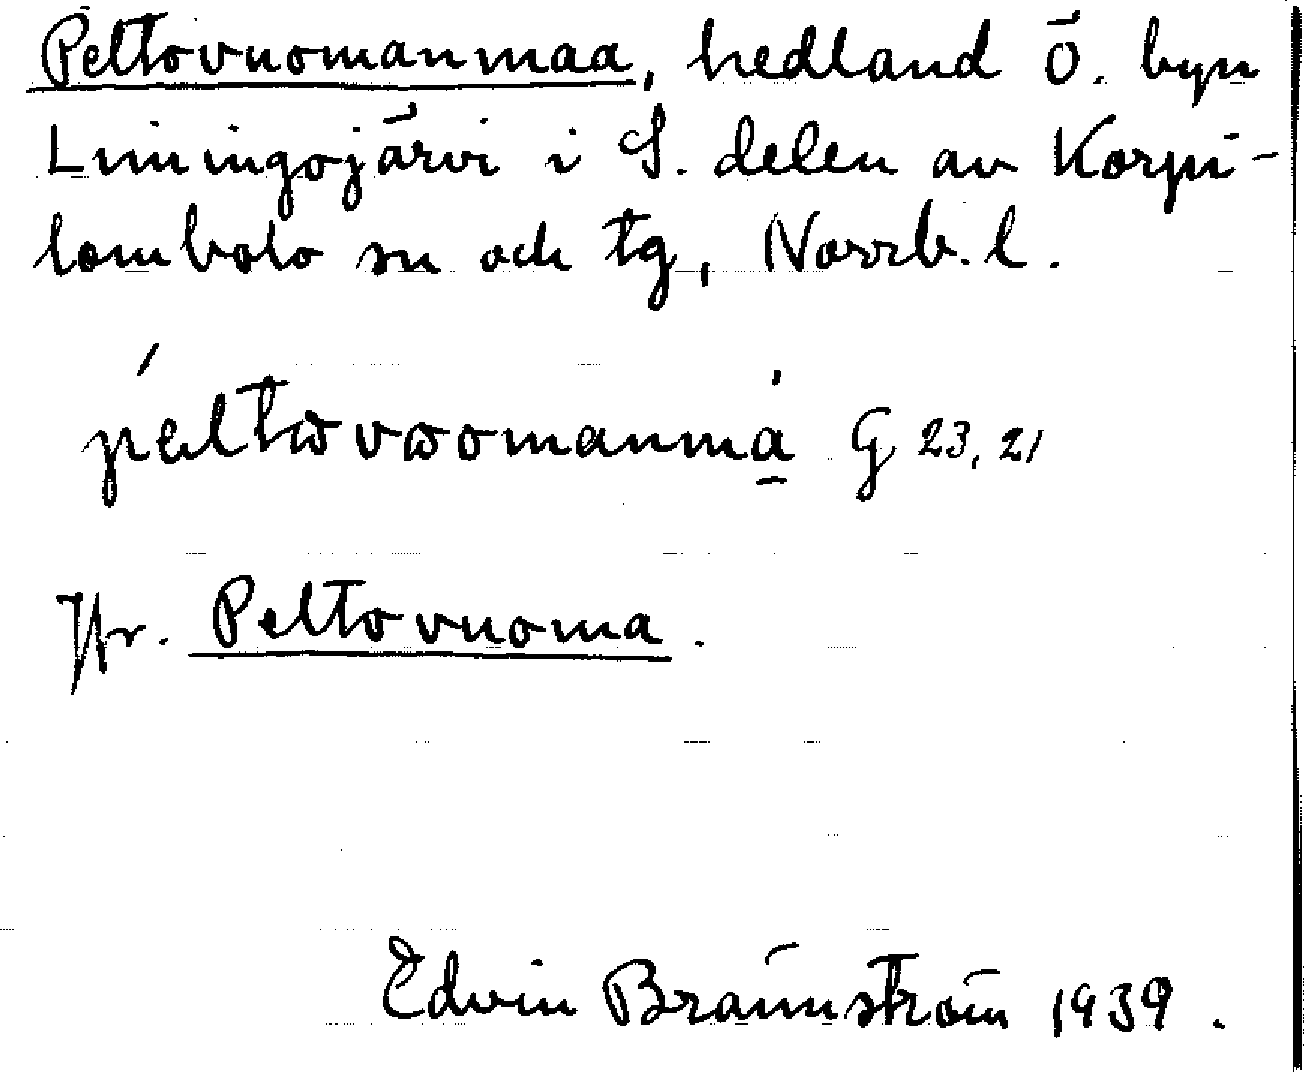 Peltovuomanmaa, hedland ö. byn
Liningojärvi i S. delen av Korpi-
lombolo sn och tg, Norrb. l.
péltωvωomanmạ G 23, 21
Jfr. Peltovuoma.
Edvin Brännström 1939.